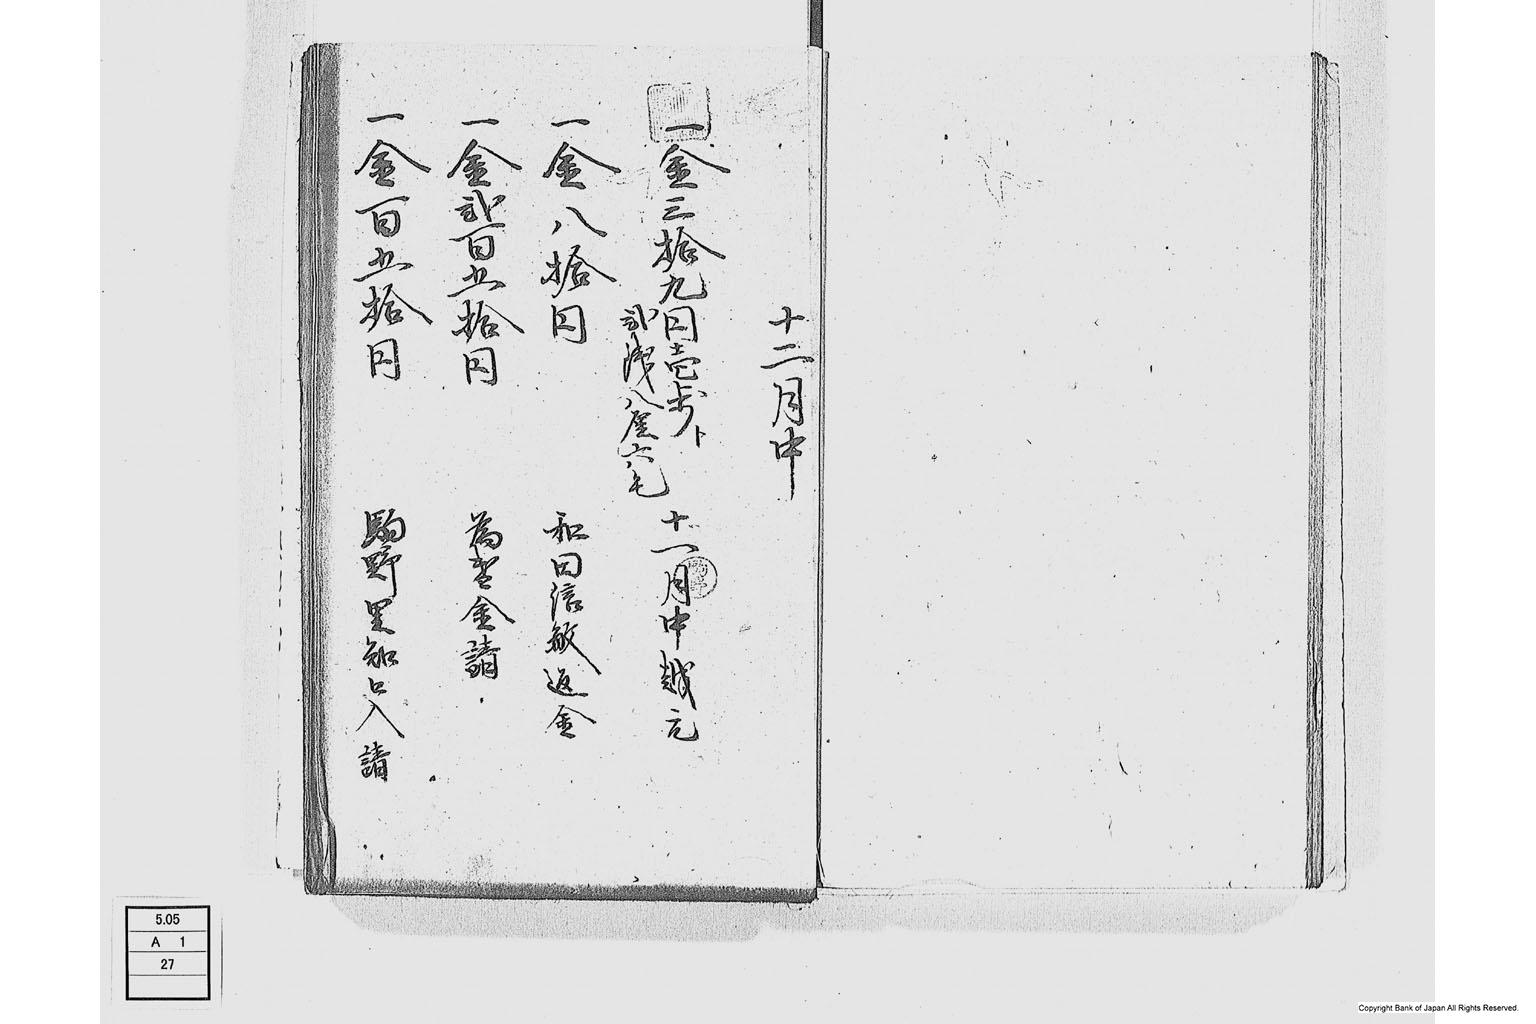 十二月中
一金三拾九円壱歩ト
弐銭八厘六毛
十一月中越元
一金八拾円
和田信敏返金
一金弐百五拾円
為替金請
一金百五拾円
野里知口入請
5.05
A 1
27
Copyright Bank of Japan All Rights Reserved.